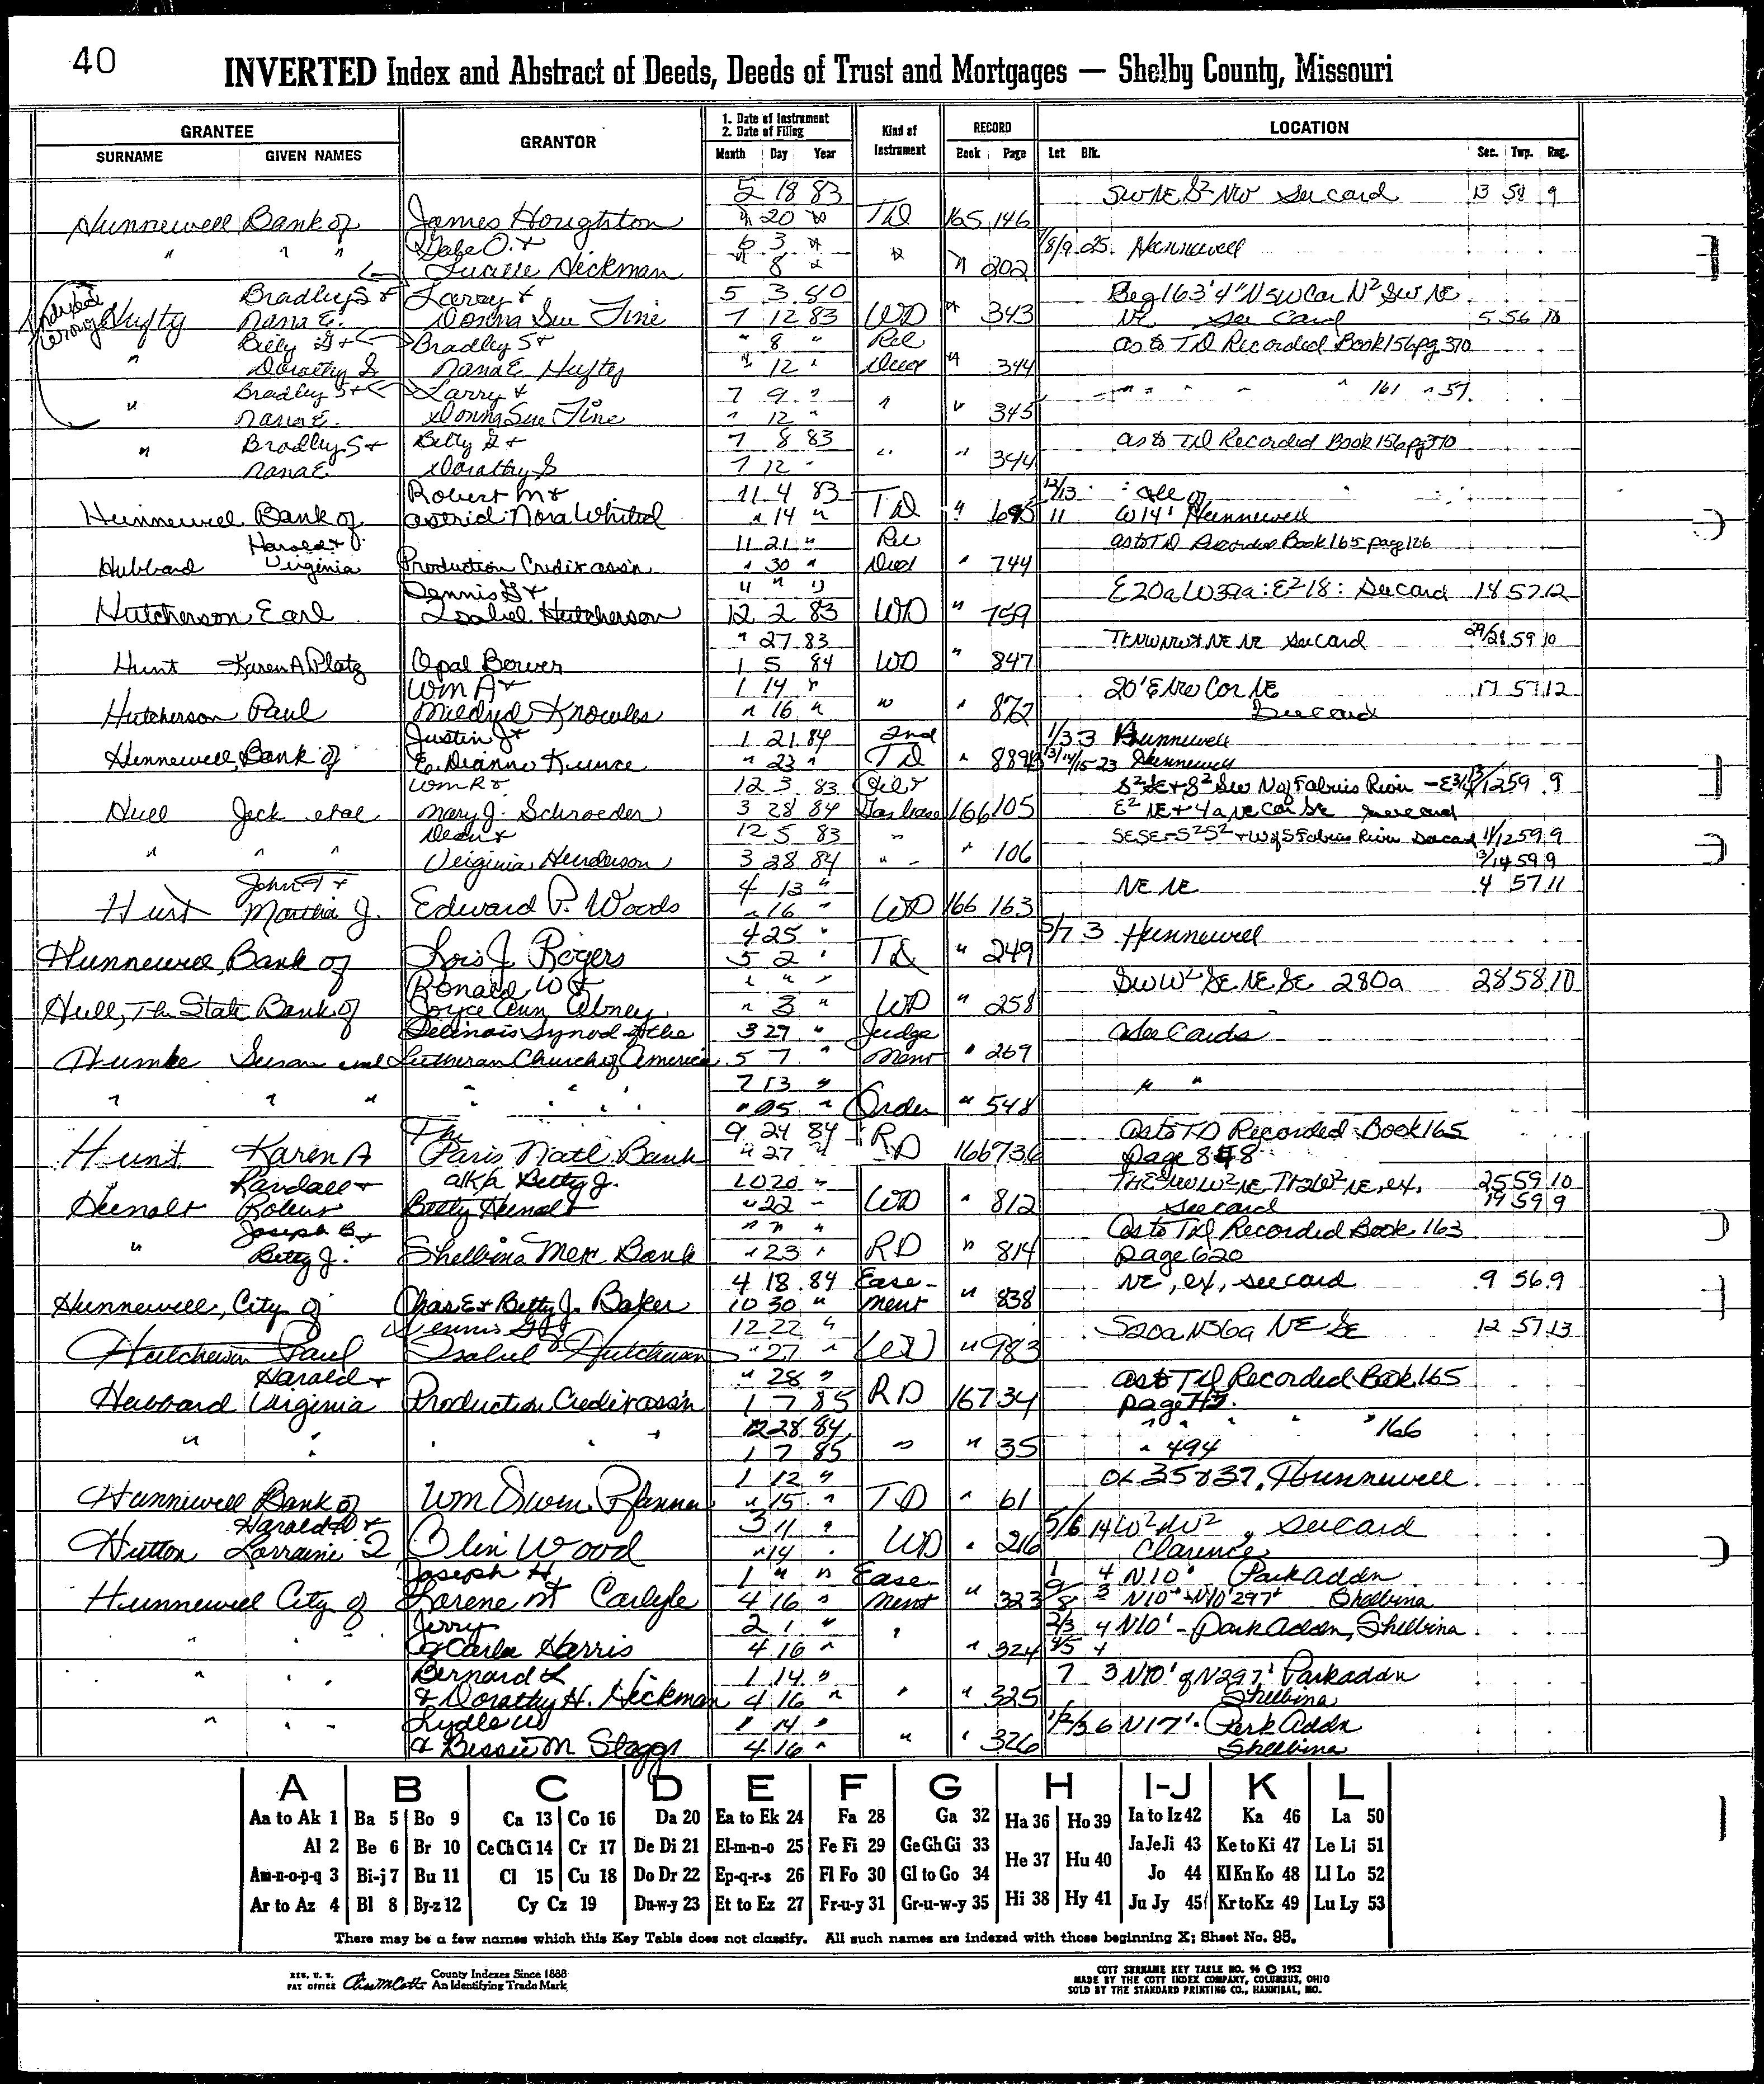 40
INVERTED Index and Abstract of Deeds, Deeds of Trust and Mortgages — Shelby County, Missouri
GRANTEE
SURNAME GIVEN NAMES
GRANTOR
1. Date of Instrument
2. Date of Filing
Month Day Year
Kind of
Instrument
RECORD
Book Page
LOCATION
Lot Blk. Sec. Twp. Rng.
5 18 83 SWNE S² NW See card 13 58 9
Hunnewell Bank of James Houghton " 20 " TD 165 146
" " " Gabe O. & 6 3 " " 8/9 25. Hunnewell
Lucille Hickman " 8 " " 202
Indexed
wrong
Bradley S & Larry & 5 3 80 Beg 163'4" N SW Cor N² SW NE
Hufty Nana E. Donna Sue Fine 7 12 83 WD " 343 NE See Card 5 56 10
Billy G & Bradley S & " 8 " Rel as to TD Recorded Book 156 pg 370
" Dorothy S Nana E Hufty " 12 " Deed " 344
Bradley S & Larry & 7 9 " " " " " " 161 " 57
" Nana E. Donna Sue Fine " 12 " " " 345
" Bradley S & Billy G & 7 8 83 as to TD Recorded Book 156 pg 370
Nana E Dorothy S 7 12 " " " 344
Robert M & 11 4 83 12/13 all of
Hunnewell Bank of Astrid Nora Whited " 14 " TD " 695 11 W14' Hunnewell
Harold & 11 21 " Rel as to TD Recorded Book 165 page 126
Hubbard Virginia Production Credit Ass'n " 30 " Deed " 744
Dennis G & " " " E20a W39a: E²18: See card 18 57 12
Hutcherson Earl Isabel Hutcherson 12 2 83 WD " 759
" 27 83 See Card 29/28 59 10
Hunt Karen A Platz Opal Bower 1 5 84 WD " 847
Wm A & 1 14 " 20' E NW Cor NE 17 57 12
Hutcherson Paul Mildred Knowles " 16 " " " 872 See card
Justin J & 1 21 84 2nd 1/3 3 Hunnewell
Hunnewell, Bank of E. Dianne Kunce " 23 " TD " 889 13/14/15 23 Hunnewell
Wm R & 12 3 83 Oil &
Hull Jack et al Mary J. Schroeder 3 28 84 Gas lease 166 105 E² NE + 4a NE Cor SE See card
Dean & 12 5 83 " See card 11/12 59 9
" " " Virginia Henderson 3 28 84 " " 106 13/14 59 9
John T & 4 13 " NE NE 4 57 11
Hurt Martha J. Edward P. Woods " 16 " WD 166 163
4 25 " 5/7 3 Hunnewell
Hunnewell, Bank of Lois J. Rogers 5 2 " TD " 249
Ronald W & " " " SW W² SE NE SE 280a 28 58 10
Hull, The State Bank of Joyce Ann Abney " 3 " WD " 258
Illinois Synod of the 3 29 " Judge See Cards
Humke Susan Lutheran Church of America 5 7 " ment " 269
7 13 " " "
" " " " " " " " 25 " Order " 548
The 9 24 84 RD as to TD Recorded Book 165
Hunt Karen A Paris Natl Bank " 27 " 166 736 page 848
Randall & a/k/a Betty J. 10 20 " 25 59 10
Hunolt Robin Betty Hunolt " 22 " WD " 812 see card 19 59 9
Joseph B & " " " as to TD Recorded Book 163
" Betty J. Shelbina Merc Bank " 23 " RD " 814 page 620
4 18 84 Ease- NE, ex, see card 9 56 9
Hunnewell, City of Chas E & Betty J. Baker 10 30 " ment " 838
Dennis G & 12 22 " S20a N36a NE SE 12 57 13
Hutcherson Paul Isabel Hutcherson " 27 " WD " 983
Harold & " 28 " as to TD Recorded Book 165
Hubbard Virginia Production Credit ass'n 1 7 85 RD 167 34 page 745.
12 28 84 " " " " 166
" " " " " 1 7 85 " " 35 " 494
1 12 " OL 35 & 37, Hunnewell
Hunnewell Bank of Wm Owen Pfanner " 15 " TD " 61
Harold D & 3 11 " 5/6 14 W² W² See card
Hutton Lorraine I Olin Wood " 14 " WD " 216 Clarence
Joseph H 1 " " Ease- 4 N10' Park Addn
Hunnewell City of Larene M Carlyle 4 16 " ment " 323 3 N10' + N10' 297' Shelbina
Jerry 2 1 " 2/3 4 N10' - Park Addn, Shelbina
" " " & Carla Harris 4 16 " " " 324 4/5 4
Bernard L 1 14 " 7 3 N10' of N297' Park addn
" " " & Dorathy H. Hickman 4 16 " " " 325 Shelbina
Lydle W 1 14 " 1/2/3 6 N17'. Park Addn
" " " & Bessie M Staggs 4 16 " " " 326 Shelbina
A B C D E F G H I-J K L
Aa to Ak 1 Ba 5 Bo 9 Ca 13 Co 16 Da 20 Ea to Ek 24 Fa 28 Ga 32 Ha 36 Ho 39 Ia to Iz 42 Ka 46 La 50
Al 2 Be 6 Br 10 Ce Ch Ci 14 Cr 17 De Di 21 El-m-n-o 25 Fe Fi 29 Ge Gh Gi 33 He 37 Hu 40 Ja Je Ji 43 Ke to Ki 47 Le Li 51
Am-n-o-p-q 3 Bi-j 7 Bu 11 Cl 15 Cu 18 Do Dr 22 Ep-q-r-s 26 Fl Fo 30 Gl to Go 34 Jo 44 Kl Kn Ko 48 Ll Lo 52
Ar to Az 4 Bl 8 By-z 12 Cy Cz 19 Du-w-y 23 Et to Ez 27 Fr-u-y 31 Gr-u-w-y 35 Hi 38 Hy 41 Ju Jy 45 Kr to Kz 49 Lu Ly 53
There may be a few names which this Key Table does not classify. All such names are indexed with those beginning X; Sheet No. 95.
REG. U. S.
PAT OFFICE
County Indexes Since 1888
An Identifying Trade Mark
COTT SURNAME KEY TABLE NO. 96 © 1952
MADE BY THE COTT INDEX COMPANY, COLUMBUS, OHIO
SOLD BY THE STANDARD PRINTING CO., HANNIBAL, MO.